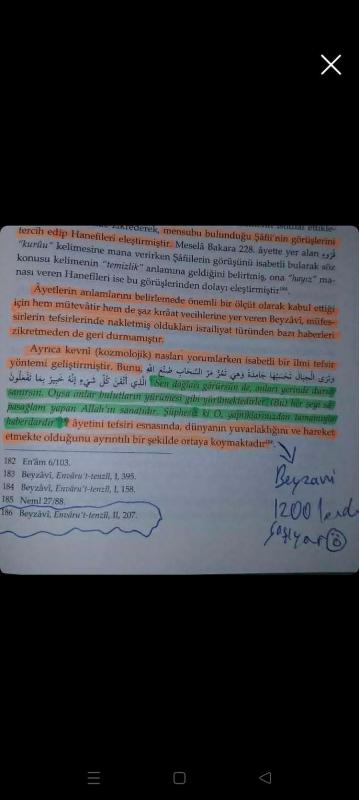 zikrederek, mensubu bulunduğu Şâfiî'nin görüşlerini
tercih edip Hanefîleri eleştirmiştir. Meselâ Bakara 228. âyette yer alan قُرُوء
"kurûu" kelimesine mana verirken Şâfiîlerin görüşünü isabetli bularak söz
konusu kelimenin "temizlik" anlamına geldiğini belirtmiş, ona "hayız" ma-
nası veren Hanefîleri ise bu görüşlerinden dolayı eleştirmiştir¹⁸⁴.
Âyetlerin anlamlarını belirlemede önemli bir ölçüt olarak kabul ettiği
için hem mütevâtir hem de şaz kırâat vecihlerine yer veren Beyzâvî, müfes-
sirlerin tefsirlerinde nakletmiş oldukları israiliyat türünden bazı haberleri
zikretmeden de geri durmamıştır.
Ayrıca kevnî (kozmolojik) nasları yorumlarken isabetli bir ilmî tefsir
yöntemi geliştirmiştir. Bunu, وَتَرَى الْجِبَالَ تَحْسَبُهَا جَامِدَةً وَهِيَ تَمُرُّ مَرَّ السَّحَابِ صُنْعَ اللَّهِ
الَّذِي أَتْقَنَ كُلَّ شَيْءٍ إِنَّهُ خَبِيرٌ بِمَا تَفْعَلُونَ "Sen dağları görürsün de, onları yerinde durur
sanırsın. Oysa onlar bulutların yürümesi gibi yürümektedirler. (Bu) her şeyi sa-
pasağlam yapan Allah'ın sanatıdır. Şüphesiz ki O, yaptıklarınızdan tamamıyla
haberdardır"¹⁸⁵ âyetini tefsiri esnasında, dünyanın yuvarlaklığını ve hareket
etmekte olduğunu ayrıntılı bir şekilde ortaya koymaktadır¹⁸⁶.
182 En'âm 6/103.
183 Beyzâvî, Envâru't-tenzîl, I, 395.
184 Beyzâvî, Envâru't-tenzîl, I, 158.
185 Neml 27/88.
186 Beyzâvî, Envâru't-tenzîl, II, 207.
Beyzavi
1200 lerde
yaşıyor